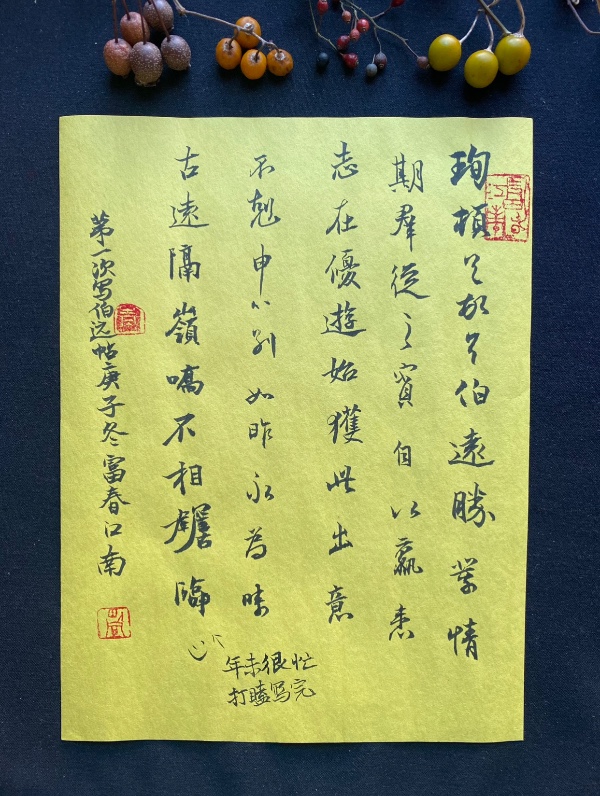 珣頓首頓首伯遠勝業情
期羣從之寶自以羸患
志在優遊始獲此出意
不剋申分别如昨永為疇
古遠隔嶺嶠不相瞻臨
第一次写伯远帖庚子冬富春江南
年末很忙
打瞌写完